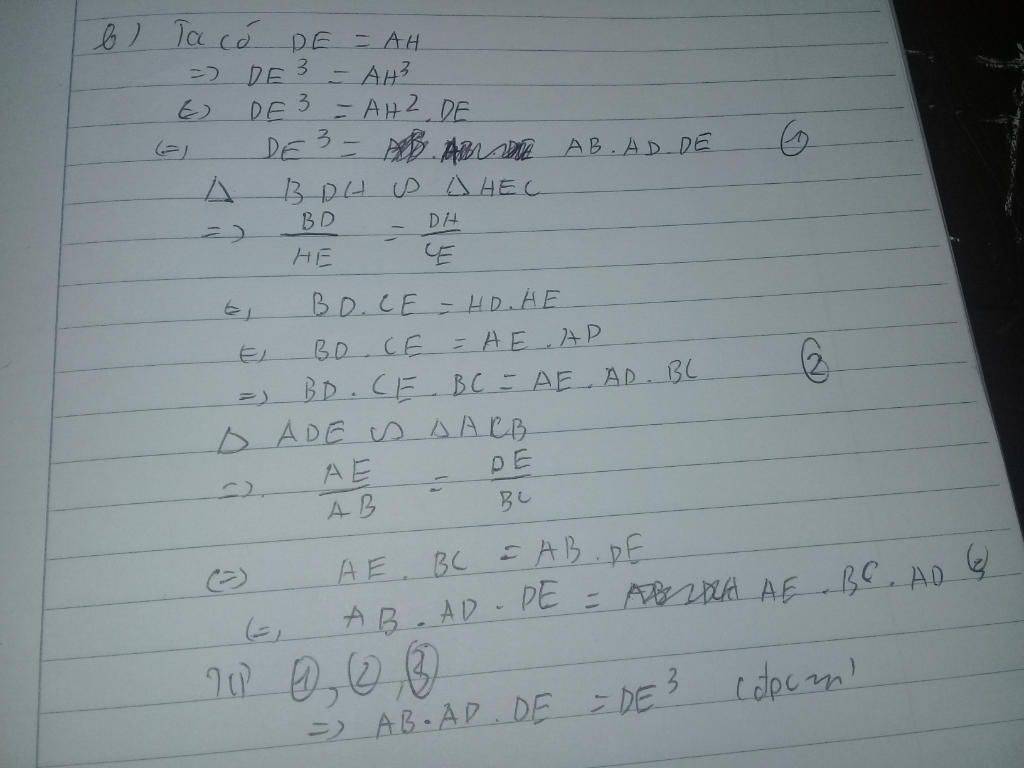 b) Ta có DE = AH
=> DE³ = AH³
<=> DE³ = AH². DE
<=> DE³ = AB. AD. DE ①
Δ BDH ∽ Δ HEC
=> BD/HE = DH/CE
<=> BD. CE = HD. HE
<=> BD. CE = AE. AD
=> BD. CE. BC = AE. AD. BC ②
Δ ADE ∽ Δ ACB
=> AE/AB = DE/BC
<=> AE. BC = AB. DE
<=> AB. AD. DE = AE. BC. AD
Từ ①, ②, ③
=> AB. AD. DE = DE³ (đpcm)